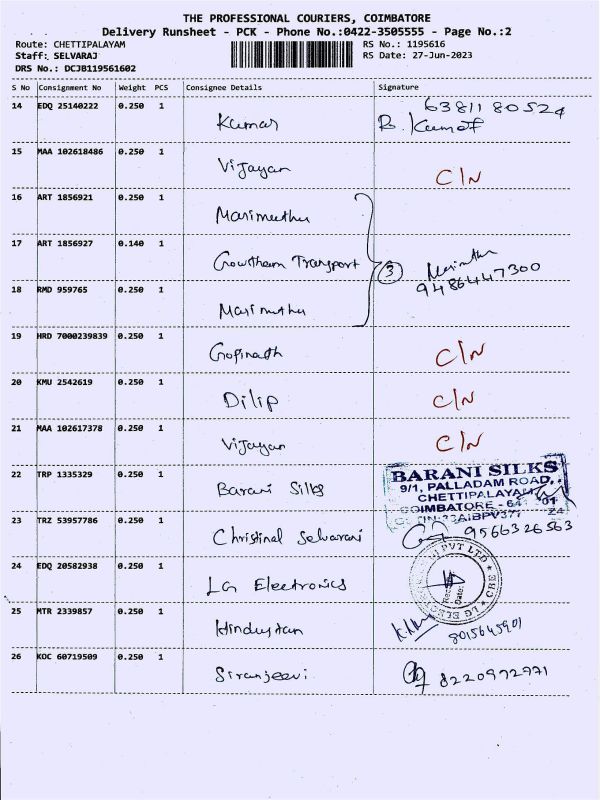 THE PROFESSIONAL COURIERS, COIMBATORE
Delivery Runsheet - PCK - Phone No.:0422-3505555 - Page No.:2
Route: CHETTIPALAYAM RS No.: 1195616
Staff: SELVARAJ RS Date: 27-Jun-2023
DRS No.: DCJB119561602
S No Consignment No Weight PCS Consignee Details Signature
14 EDQ 25140222 0.250 1 Kumar 6381180524
B. Kumar
15 MAA 102618486 0.250 1 Vijayan C/N
16 ART 1856921 0.250 1 Marimuthu
17 ART 1856927 0.140 1 Gowtham Transport 3 Marimuthu
9486447300
18 RMD 959765 0.250 1 Marimuthu
19 HRD 7000239839 0.250 1 Gopinath C/N
20 KMU 2542619 0.250 1 Dilip C/N
21 MAA 102617378 0.250 1 Vijayan C/N
22 TRP 1335329 0.250 1 Barani Silks BARANI SILKS
9/1, PALLADAM ROAD,
CHETTIPALAYAM
COIMBATORE - 641 201
23 TRZ 53957786 0.250 1 Christinal Selvarani 9566326563
24 EDQ 20582938 0.250 1 LG Electronics PVT LTD
25 MTR 2339857 0.250 1 Hindustan 8015645901
26 KOC 60719509 0.250 1 Siranjeevi 8220972971